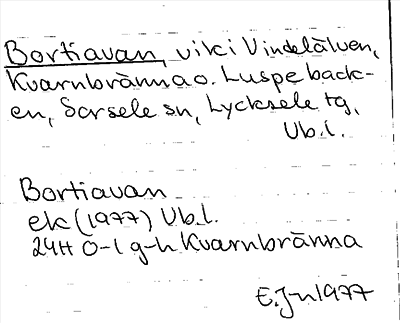 Bortiavan, vik i Vindelälven,
Kvarnbränna o. Luspeback-
en, Sorsele sn, Lycksele tg,
Vb.l.
Bortiavan
ek (1977) Vb.l.
24H 0-1 g-h Kvarnbränna
E.J-n 1977